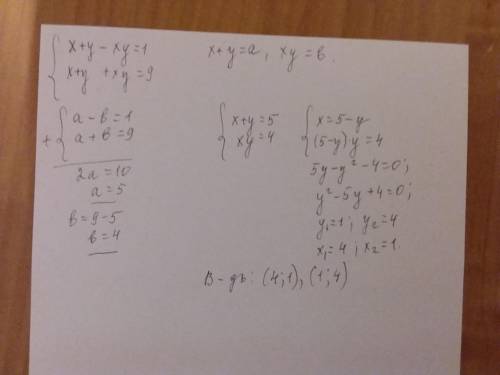 x+y-xy=1
x+y +xy=9
x+y=a, xy=в.
a-в=1
+ a+в=9
2a=10
a=5
в=9-5
в=4
x+y=5
xy=4
x=5-y
(5-y)y=4
5y-y²-4=0;
y²-5y+4=0;
y₁=1; y₂=4
x₁=4; x₂=1.
В-дь: (4;1), (1;4)